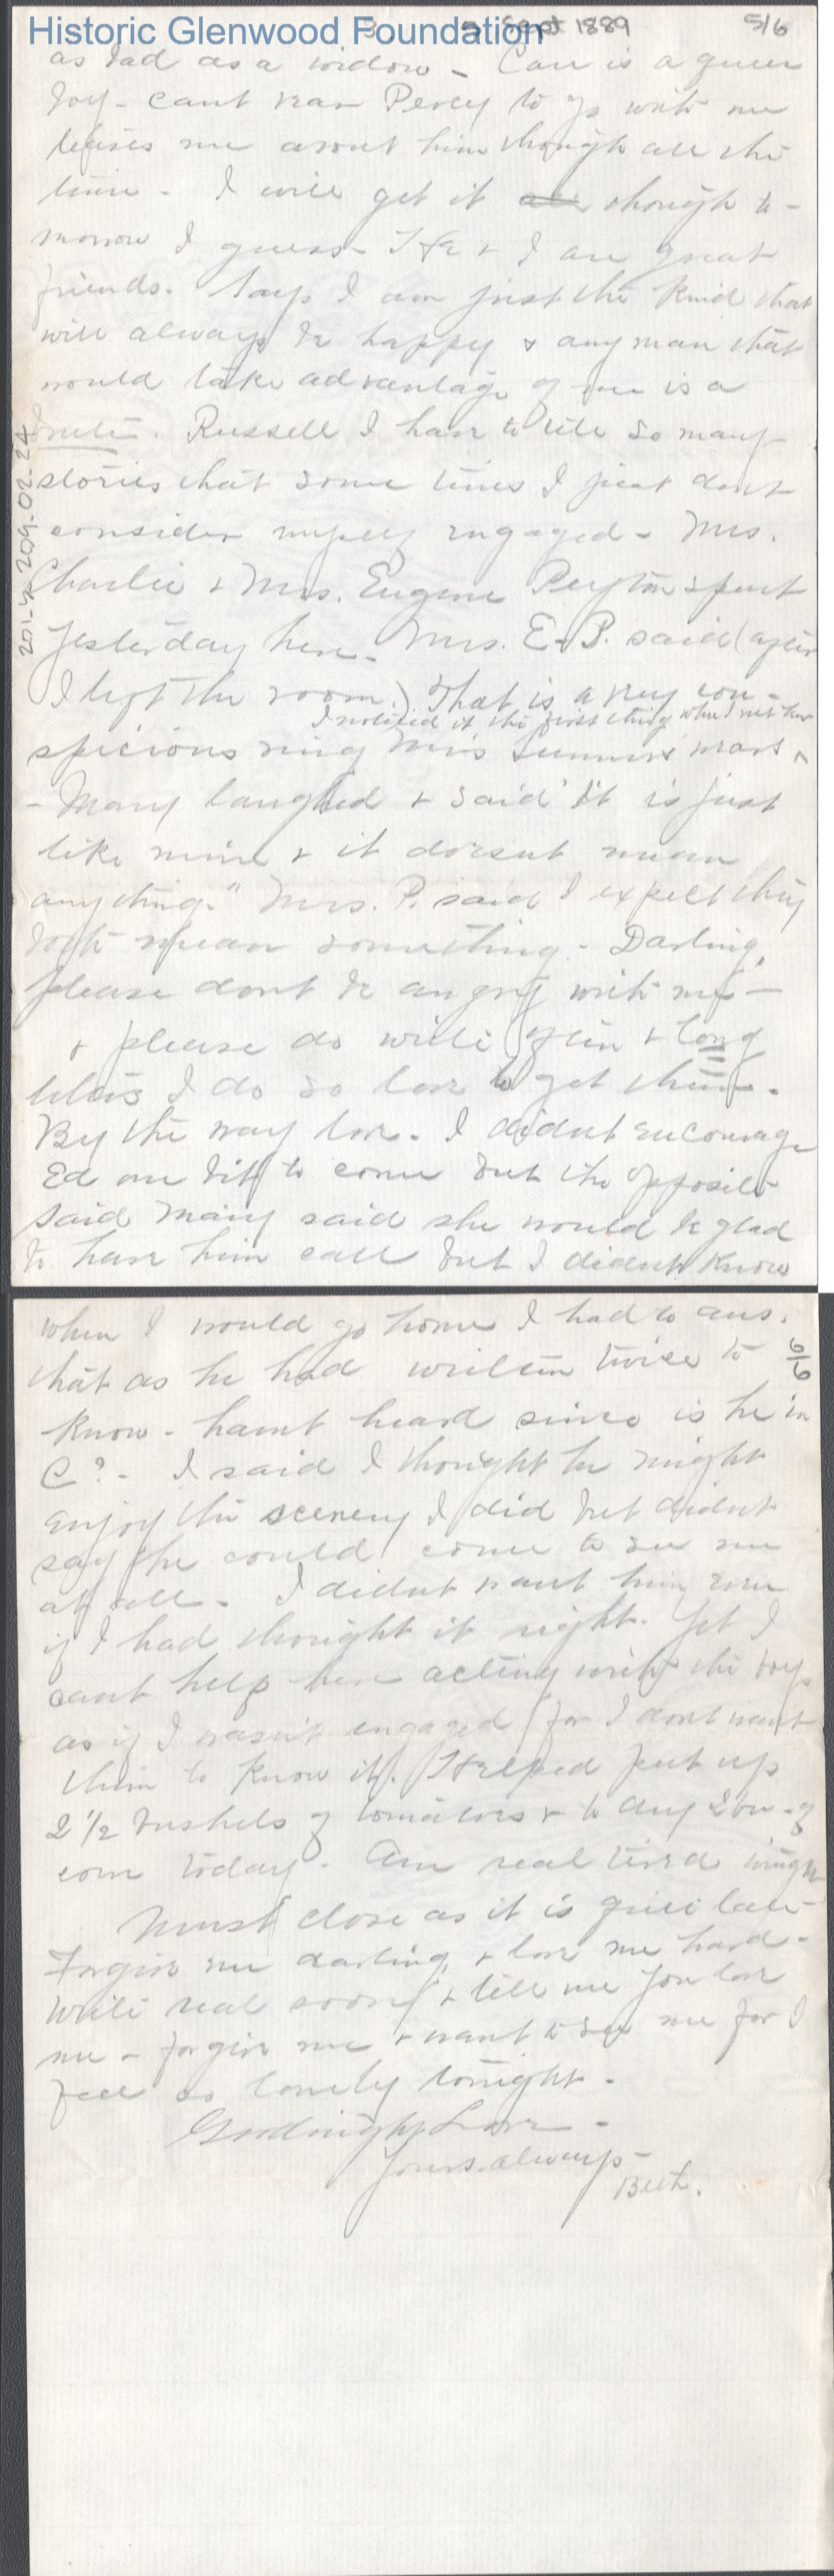 Historic Glenwood Foundation
Sept 1889
5/6
as bad as a widow - Carr is a queer
boy - cant bear Percy to go with me
teases me about him though all the
time - I will get it though to-
morrow I guess - He & I are great
friends. Says I am just the kind that
will always be happy & any man that
would take advantage of me is a
brute. Russell I have to tell so many
stories that some times I just dont
consider myself engaged - Mrs.
Charlie & Mrs. Eugene Peyton spent
yesterday here - Mrs. E. P. said (after
I left the room.) That is a very con-
I noticed it the first thing when I met her
spicious ring Miss Summers wears ^
- Mary laughed & said "it is just
like mine & it doesnt mean
anything." Mrs. P. said I expect they
both mean something - Darling,
please dont be angry with me -
& please do write often & long
letters I do so love to get them -
By the way love - I didnt encourage
Ed one bit to come but the opposite
said Mary said she would be glad
to have him call but I didnt know
201.4.209.02.24
when I would go home I had to ans.
6/6
that as he had written twice to
know - havnt heard since is he in
C? - I said I thought he might
enjoy the scenery I did but didnt
say he could come to see me
at all - I didnt want him even
if I had thought it right. Yet I
cant help here acting with the boys
as if I wasn't engaged for I dont want
them to know it. Helped put up
2 1/2 bushels of tomatoes & to dry 2 bu - of
corn today - Am real tired tonight
Must close as it is quite late -
Forgive me darling, & love me hard -
Write real soon & tell me you love
me - forgive me & want to see me for I
feel so lonely tonight -
Goodnight Love -
Yours always -
Beth.